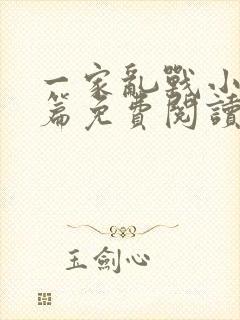 一家亂戰小
篇免費閱讀
玉劍心